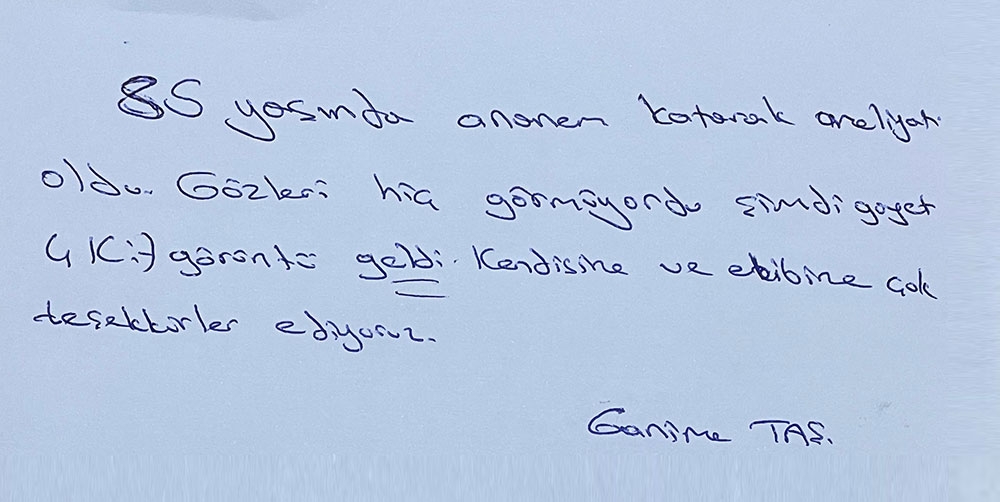 85 yaşında ananem katarak ameliyatı
oldu. Gözleri hiç görmüyordu şimdi gayet
4K görüntü geldi. Kendisine ve ekibine çok
teşekkürler ediyoruz.
Ganime TAŞ.